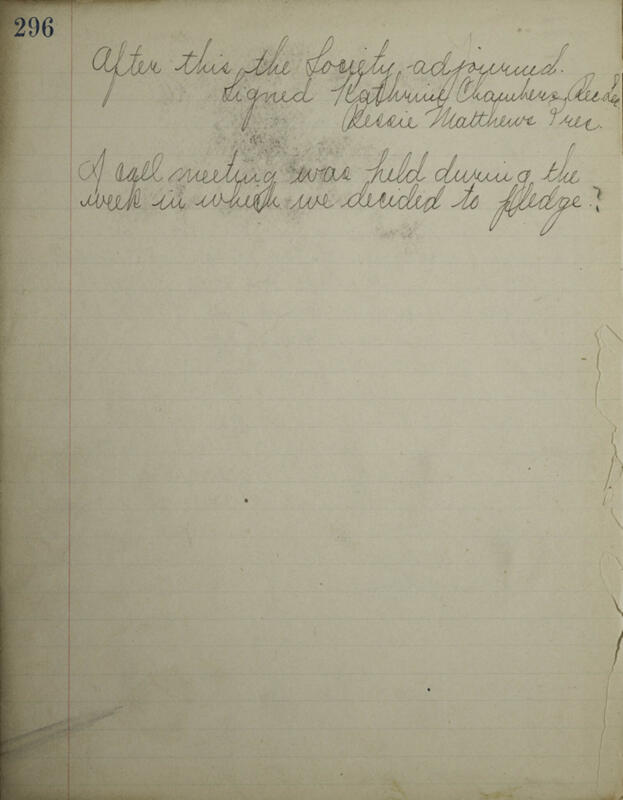 296
After this the Society adjourned.
Signed Kathrine Chambers, Rec Sec
Bessie Matthews Pres.
A call meeting was held during the
week in which we decided to pledge?